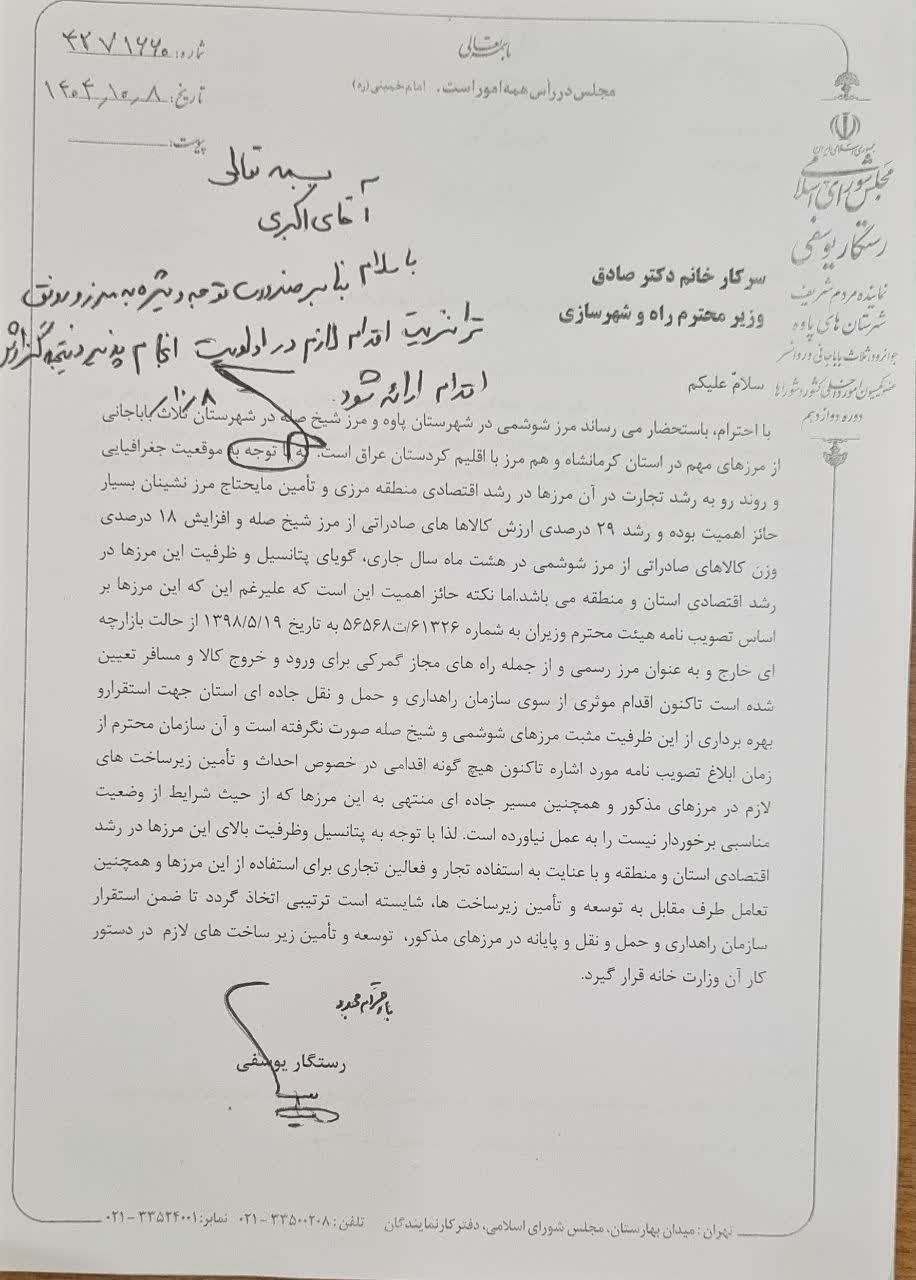 باسمه تعالی
مجلس در رأس همه امور است. امام خمینی (ره)
شماره: ۴۲۷۱۶۶۰
تاریخ: ۱۴۰۴,۱۰,۸
پیوست:
جمهوری اسلامی ایران
مجلس شورای اسلامی
رستگار یوسفی
نماینده مردم شریف
شهرستان های پاوه
جوانرود، ثلاث باباجانی و روانسر
عضو کمیسیون امور داخلی کشور و شوراها
دوره دوازدهم
بسمه تعالی
آقای اکبری
با سلام بنا بر ضرورت توجه ویژه به مرز و رونق
ترانزیت اقدام لازم در اولویت انجام پذیرد نتیجه گزارش
اقدام ارائه شود.
۱۰/۸
سرکار خانم دکتر صادق
وزیر محترم راه و شهرسازی
سلامٌ علیکم
با احترام، باستحضار می رساند مرز شوشمی در شهرستان پاوه و مرز شیخ صله در شهرستان ثلاث باباجانی
از مرزهای مهم در استان کرمانشاه و هم مرز با اقلیم کردستان عراق است. که با توجه به موقعیت جغرافیایی
و روند رو به رشد تجارت در آن مرزها در رشد اقتصادی منطقه مرزی و تأمین مایحتاج مرز نشینان بسیار
حائز اهمیت بوده و رشد ۲۹ درصدی ارزش کالاها های صادراتی از مرز شیخ صله و افزایش ۱۸ درصدی
وزن کالاهای صادراتی از مرز شوشمی در هشت ماه سال جاری، گویای پتانسیل و ظرفیت این مرزها در
رشد اقتصادی استان و منطقه می باشد.اما نکته حائز اهمیت این است که علیرغم این که این مرزها بر
اساس تصویب نامه هیئت محترم وزیران به شماره ۶۱۳۲۶/ت۵۶۵۶۸ به تاریخ ۱۳۹۸/۵/۱۹ از حالت بازارچه
ای خارج و به عنوان مرز رسمی و از جمله راه های مجاز گمرکی برای ورود و خروج کالا و مسافر تعیین
شده است تاکنون اقدام موثری از سوی سازمان راهداری و حمل و نقل جاده ای استان جهت استقرارو
بهره برداری از این ظرفیت مثبت مرزهای شوشمی و شیخ صله صورت نگرفته است و آن سازمان محترم از
زمان ابلاغ تصویب نامه مورد اشاره تاکنون هیچ گونه اقدامی در خصوص احداث و تأمین زیرساخت های
لازم در مرزهای مذکور و همچنین مسیر جاده ای منتهی به این مرزها که از حیث شرایط از وضعیت
مناسبی برخوردار نیست را به عمل نیاورده است. لذا با توجه به پتانسیل وظرفیت بالای این مرزها در رشد
اقتصادی استان و منطقه و با عنایت به استفاده تجار و فعالین تجاری برای استفاده از این مرزها و همچنین
تعامل طرف مقابل به توسعه و تأمین زیرساخت ها، شایسته است ترتیبی اتخاذ گردد تا ضمن استقرار
سازمان راهداری و حمل و نقل و پایانه در مرزهای مذکور، توسعه و تأمین زیر ساخت های لازم در دستور
کار آن وزارت خانه قرار گیرد.
با احترام مجدد
رستگار یوسفی
تهران: میدان بهارستان، مجلس شورای اسلامی، دفتر کار نمایندگان تلفن: ۳۳۵۰۰۲۰۸-۰۲۱ نمابر: ۳۳۵۲۴۰۰۱-۰۲۱